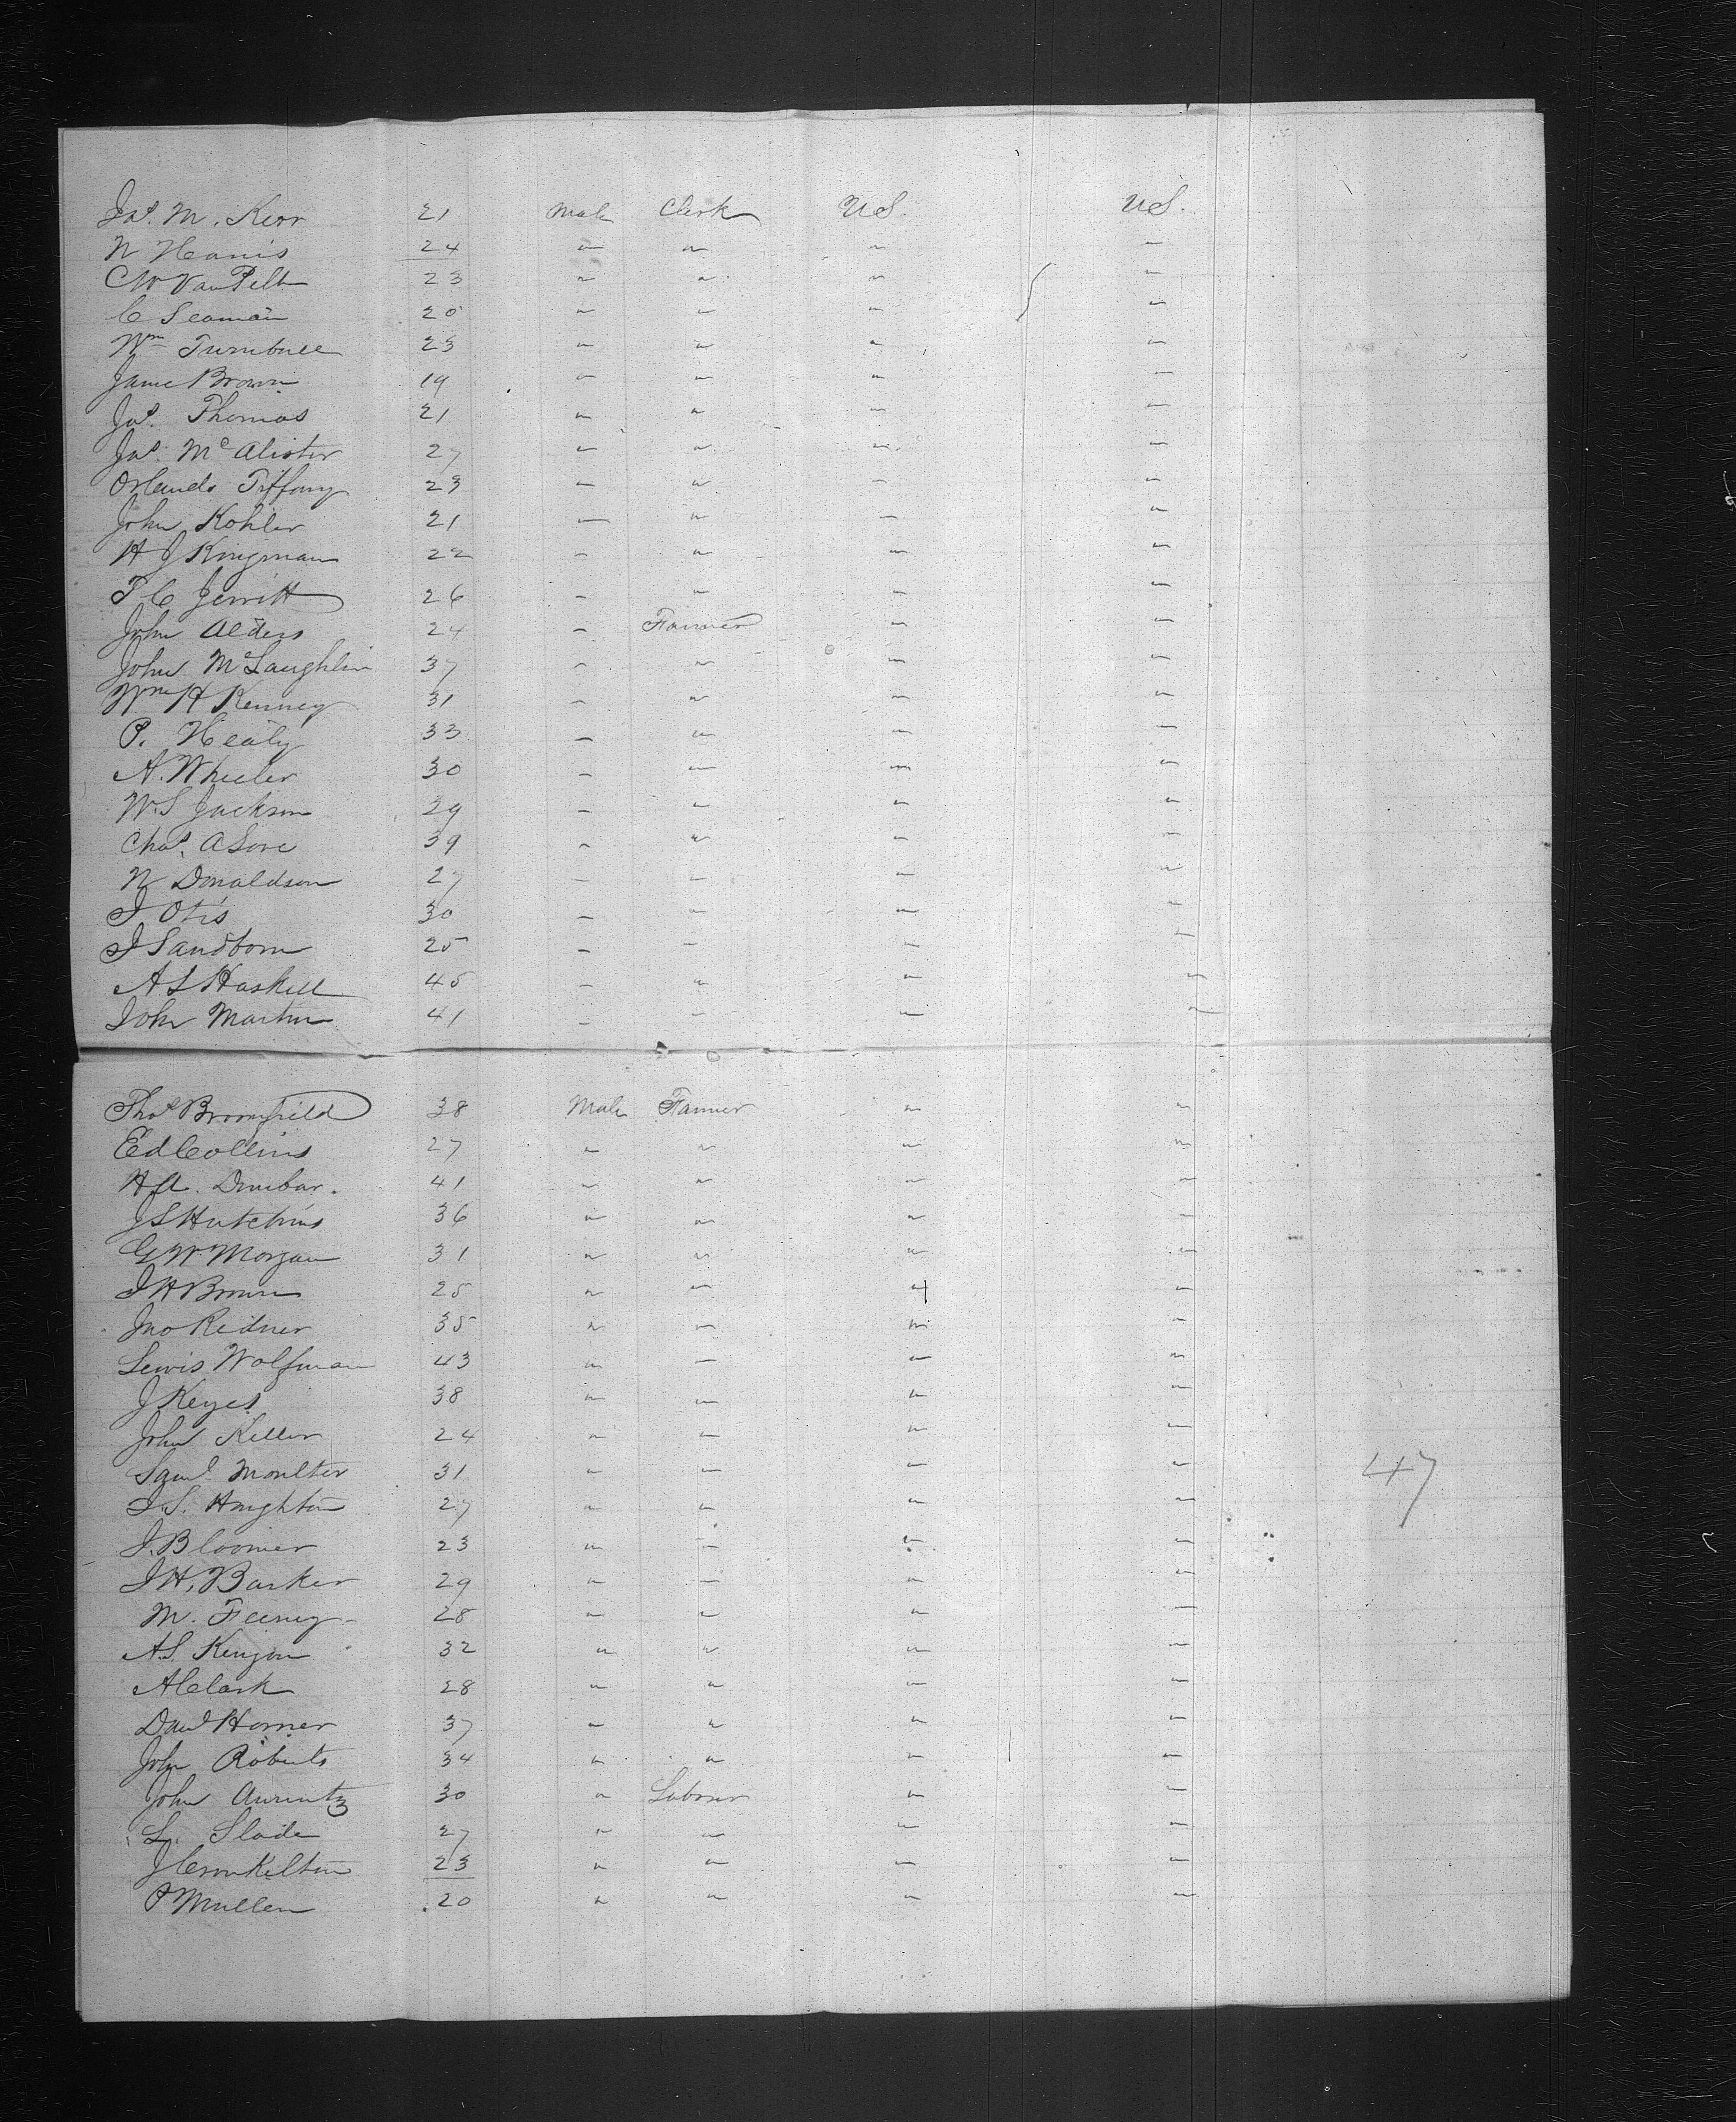 Jas. M. Kerr 21 Male Clerk U.S. U.S.
N Harris 24 " " " "
C W Van Pelt 23 " " " "
C Seaman 20 " " " "
Wm Turnbull 23 " " " "
Jame Brown 19 " " " "
Jas. Thomas 21 " " " "
Jas. McAlister 27 " " " "
Orlando Tiffany 23 " " " "
John Kohler 21 " " " "
H J Kingman 22 " " " "
F C Jerritt 26 " " " "
John Alders 24 " Farmer " "
John McLaughlin 37 " " " "
Wm H Kenney 31 " " " "
P. Healy 33 " " " "
A. Wheeler 30 " " " "
W. S Jackson 29 " " " "
Chas. A Love 39 " " " "
N Donaldson 27 " " " "
J Otis 30 " " " "
J Sandborn 25 " " " "
A S Haskell 45 " " " "
John Martin 41 " " " "
Thos Broomfield 38 Male Farmer " "
Ed Collins 27 " " " "
H A. Dunbar. 41 " " " "
J S Hutchins 36 " " " "
G W. Morgan 31 " " " "
J H Brown 25 " " " "
Jno Redner 35 " " " "
Lewis Wolfman 43 " " " "
J Keyes 38 " " " "
John Keller 24 " " " "
Saml. Moulter 31 " " " " 47
J. S. Houghton 27 " " " "
J. Bloomer 23 " " " "
J H. Barker 29 " " " "
M. Feeney 28 " " " "
A. S. Kenyon 32 " " " "
A Clark 28 " " " "
Danl Horner 37 " " " "
John Roberts 34 " " " "
John Aurentz 30 " Laborer " "
L. Slade 27 " " " "
J Cronkelton 23 " " " "
P Mullen 20 " " " "